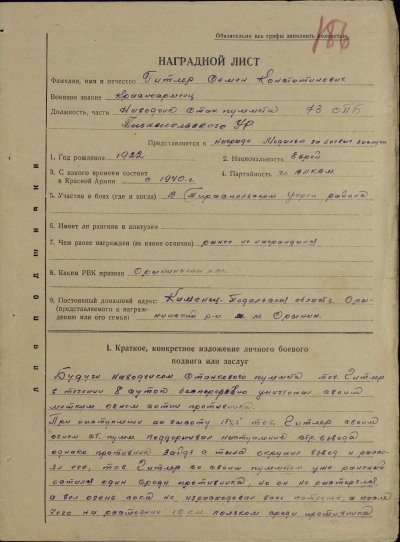 Обязательно все графы заполнить полностью.
186
НАГРАДНОЙ ЛИСТ
Фамилия, имя и отчество Гитлер Семен Константинович
Военное звание Красноармеец
Должность, часть Наводчик станк. пулемета 73 ОПБ
Тираспольского УР
Представляется к награде Медалью за боевые заслуги
1. Год рождения 1922 2. Национальность Еврей
3. С какого времени состоит
в Красной Армии с 1940 г. 4. Партийность чл. ВЛКСМ
5. Участие в боях (где и когда) В Тираспольском Укреп районе
6. Имеет ли ранения и контузии
7. Чем ранее награжден (за какие отличия) ранее не награждался
8. Каким РВК призван Орынинским рвк
9. Постоянный домашний адрес: Каменец-Подольская область Оры-
(представляемого к награж-
дению или его семьи) нинский р-н м. Орынин
ДЛЯ ПОДШИВКИ
I. Краткое, конкретное изложение личного боевого
подвига или заслуг
Будучи наводчиком станкового пулемета тов. Гитлер
в течении 8 суток беспрерывно уничтожал своим
метким огнем сотни противника.
При наступлении на высоту тов. Гитлер своим
огнем ст. пулем. поддерживал наступление стр. взвода
однако противник зайдя с тыла окружил взвод и рассе-
ял его, тов. Гитлер со своим пулеметом уже раненый
остался один среди противника, но он не растерялся
а вел огонь пока не израсходовал всех патронов, а после
этого на расстоянии 10 км ползком среди противника